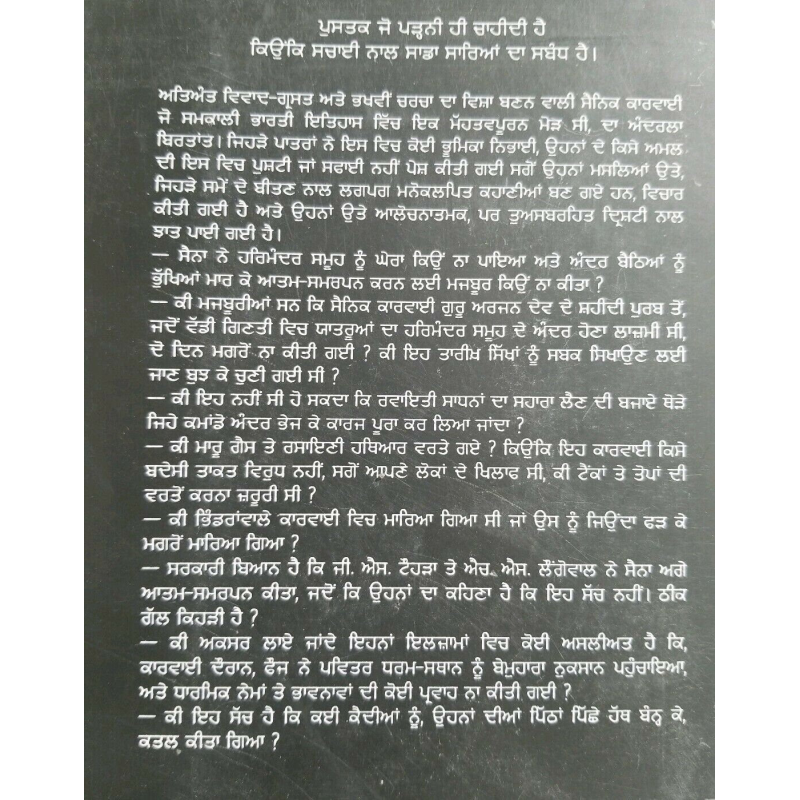 ਪੁਸਤਕ ਜੋ ਪੜ੍ਹਨੀ ਹੀ ਚਾਹੀਦੀ ਹੈ
ਕਿਉਂਕਿ ਸਚਾਈ ਨਾਲ ਸਾਡਾ ਸਾਰਿਆਂ ਦਾ ਸਬੰਧ ਹੈ।
ਅਤਿਅੰਤ ਵਿਵਾਦ-ਗ੍ਰਸਤ ਅਤੇ ਭਖਵੀਂ ਚਰਚਾ ਦਾ ਵਿਸ਼ਾ ਬਣਨ ਵਾਲੀ ਸੈਨਿਕ ਕਾਰਵਾਈ
ਜੋ ਸਮਕਾਲੀ ਭਾਰਤੀ ਇਤਿਹਾਸ ਵਿੱਚ ਇਕ ਮੱਹਤਵਪੂਰਨ ਮੋੜ ਸੀ, ਦਾ ਅੰਦਰਲਾ
ਬਿਰਤਾਂਤ। ਜਿਹੜੇ ਪਾਤਰਾਂ ਨੇ ਇਸ ਵਿਚ ਕੋਈ ਭੂਮਿਕਾ ਨਿਭਾਈ, ਉਹਨਾਂ ਦੇ ਕਿਸੇ ਅਮਲ
ਦੀ ਇਸ ਵਿਚ ਪੁਸ਼ਟੀ ਜਾਂ ਸਫਾਈ ਨਹੀਂ ਪੇਸ਼ ਕੀਤੀ ਗਈ ਸਗੋਂ ਉਹਨਾਂ ਮਸਲਿਆਂ ਉਤੇ,
ਜਿਹੜੇ ਸਮੇਂ ਦੇ ਬੀਤਣ ਨਾਲ ਲਗਪਗ ਮਨੋਕਲਪਿਤ ਕਹਾਣੀਆਂ ਬਣ ਗਏ ਹਨ, ਵਿਚਾਰ
ਕੀਤੀ ਗਈ ਹੈ ਅਤੇ ਉਹਨਾਂ ਉਤੇ ਆਲੋਚਨਾਤਮਕ, ਪਰ ਤੁਅਸਬਰਹਿਤ ਦ੍ਰਿਸ਼ਟੀ ਨਾਲ
ਝਾਤ ਪਾਈ ਗਈ ਹੈ।
— ਸੈਨਾ ਨੇ ਹਰਿਮੰਦਰ ਸਮੂਹ ਨੂੰ ਘੇਰਾ ਕਿਉਂ ਨਾ ਪਾਇਆ ਅਤੇ ਅੰਦਰ ਬੈਠਿਆਂ ਨੂੰ
ਭੁੱਖਿਆਂ ਮਾਰ ਕੇ ਆਤਮ-ਸਮਰਪਨ ਕਰਨ ਲਈ ਮਜਬੂਰ ਕਿਉਂ ਨਾ ਕੀਤਾ ?
— ਕੀ ਮਜਬੂਰੀਆਂ ਸਨ ਕਿ ਸੈਨਿਕ ਕਾਰਵਾਈ ਗੁਰੂ ਅਰਜਨ ਦੇਵ ਦੇ ਸ਼ਹੀਦੀ ਪੁਰਬ ਤੋਂ,
ਜਦੋਂ ਵੱਡੀ ਗਿਣਤੀ ਵਿਚ ਯਾਤਰੂਆਂ ਦਾ ਹਰਿਮੰਦਰ ਸਮੂਹ ਦੇ ਅੰਦਰ ਹੋਣਾ ਲਾਜ਼ਮੀ ਸੀ,
ਦੋ ਦਿਨ ਮਗਰੋਂ ਨਾ ਕੀਤੀ ਗਈ ? ਕੀ ਇਹ ਤਾਰੀਖ਼ ਸਿੱਖਾਂ ਨੂੰ ਸਬਕ ਸਿਖਾਉਣ ਲਈ
ਜਾਣ ਬੁਝ ਕੇ ਚੁਣੀ ਗਈ ਸੀ ?
— ਕੀ ਇਹ ਨਹੀਂ ਸੀ ਹੋ ਸਕਦਾ ਕਿ ਰਵਾਇਤੀ ਸਾਧਨਾਂ ਦਾ ਸਹਾਰਾ ਲੈਣ ਦੀ ਬਜਾਏ ਥੋੜੇ
ਜਿਹੇ ਕਮਾਂਡੋ ਅੰਦਰ ਭੇਜ ਕੇ ਕਾਰਜ ਪੂਰਾ ਕਰ ਲਿਆ ਜਾਂਦਾ ?
— ਕੀ ਮਾਰੂ ਗੈਸ ਤੇ ਰਸਾਇਣੀ ਹਥਿਆਰ ਵਰਤੇ ਗਏ ? ਕਿਉਂਕਿ ਇਹ ਕਾਰਵਾਈ ਕਿਸੇ
ਬਦੇਸੀ ਤਾਕਤ ਵਿਰੁਧ ਨਹੀਂ, ਸਗੋਂ ਆਪਣੇ ਲੋਕਾਂ ਦੇ ਖਿਲਾਫ ਸੀ, ਕੀ ਟੈਂਕਾਂ ਤੇ ਤੋਪਾਂ ਦੀ
ਵਰਤੋਂ ਕਰਨਾ ਜ਼ਰੂਰੀ ਸੀ ?
— ਕੀ ਭਿੰਡਰਾਂਵਾਲੇ ਕਾਰਵਾਈ ਵਿਚ ਮਾਰਿਆ ਗਿਆ ਸੀ ਜਾਂ ਉਸ ਨੂੰ ਜਿਉਂਦਾ ਫੜ ਕੇ
ਮਗਰੋਂ ਮਾਰਿਆ ਗਿਆ ?
— ਸਰਕਾਰੀ ਬਿਆਨ ਹੈ ਕਿ ਜੀ. ਐਸ. ਟੌਹੜਾ ਤੇ ਐਚ. ਐਸ. ਲੌਂਗੋਵਾਲ ਨੇ ਸੈਨਾ ਅਗੇ
ਆਤਮ-ਸਮਰਪਨ ਕੀਤਾ, ਜਦੋਂ ਕਿ ਉਹਨਾਂ ਦਾ ਕਹਿਣਾ ਹੈ ਕਿ ਇਹ ਸੱਚ ਨਹੀਂ। ਠੀਕ
ਗੱਲ ਕਿਹੜੀ ਹੈ ?
— ਕੀ ਅਕਸਰ ਲਾਏ ਜਾਂਦੇ ਇਹਨਾਂ ਇਲਜ਼ਾਮਾਂ ਵਿਚ ਕੋਈ ਅਸਲੀਅਤ ਹੈ ਕਿ,
ਕਾਰਵਾਈ ਦੌਰਾਨ, ਫੌਜ ਨੇ ਪਵਿਤਰ ਧਰਮ-ਸਥਾਨ ਨੂੰ ਬੇਮੁਹਾਰਾ ਨੁਕਸਾਨ ਪਹੁੰਚਾਇਆ,
ਅਤੇ ਧਾਰਮਿਕ ਨੇਮਾਂ ਤੇ ਭਾਵਨਾਵਾਂ ਦੀ ਕੋਈ ਪ੍ਰਵਾਹ ਨਾ ਕੀਤੀ ਗਈ ?
— ਕੀ ਇਹ ਸੱਚ ਹੈ ਕਿ ਕਈ ਕੈਦੀਆਂ ਨੂੰ, ਉਹਨਾਂ ਦੀਆਂ ਪਿੱਠਾਂ ਪਿੱਛੇ ਹੱਥ ਬੰਨ੍ਹ ਕੇ,
ਕਤਲ ਕੀਤਾ ਗਿਆ ?